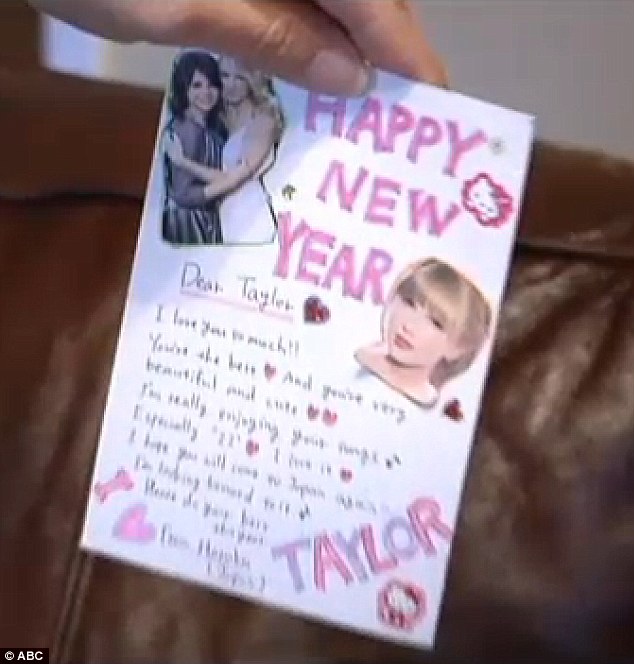 HAPPY
NEW
YEAR
Dear Taylor
I love you so much!!
You're the best And you're very
beautiful and cute
I'm really enjoying your songs
Especially "22" I love it
I hope you will come to Japan again
I'm looking forward to it
Please do your best
this year
From
(Japan)
TAYLOR
© ABC